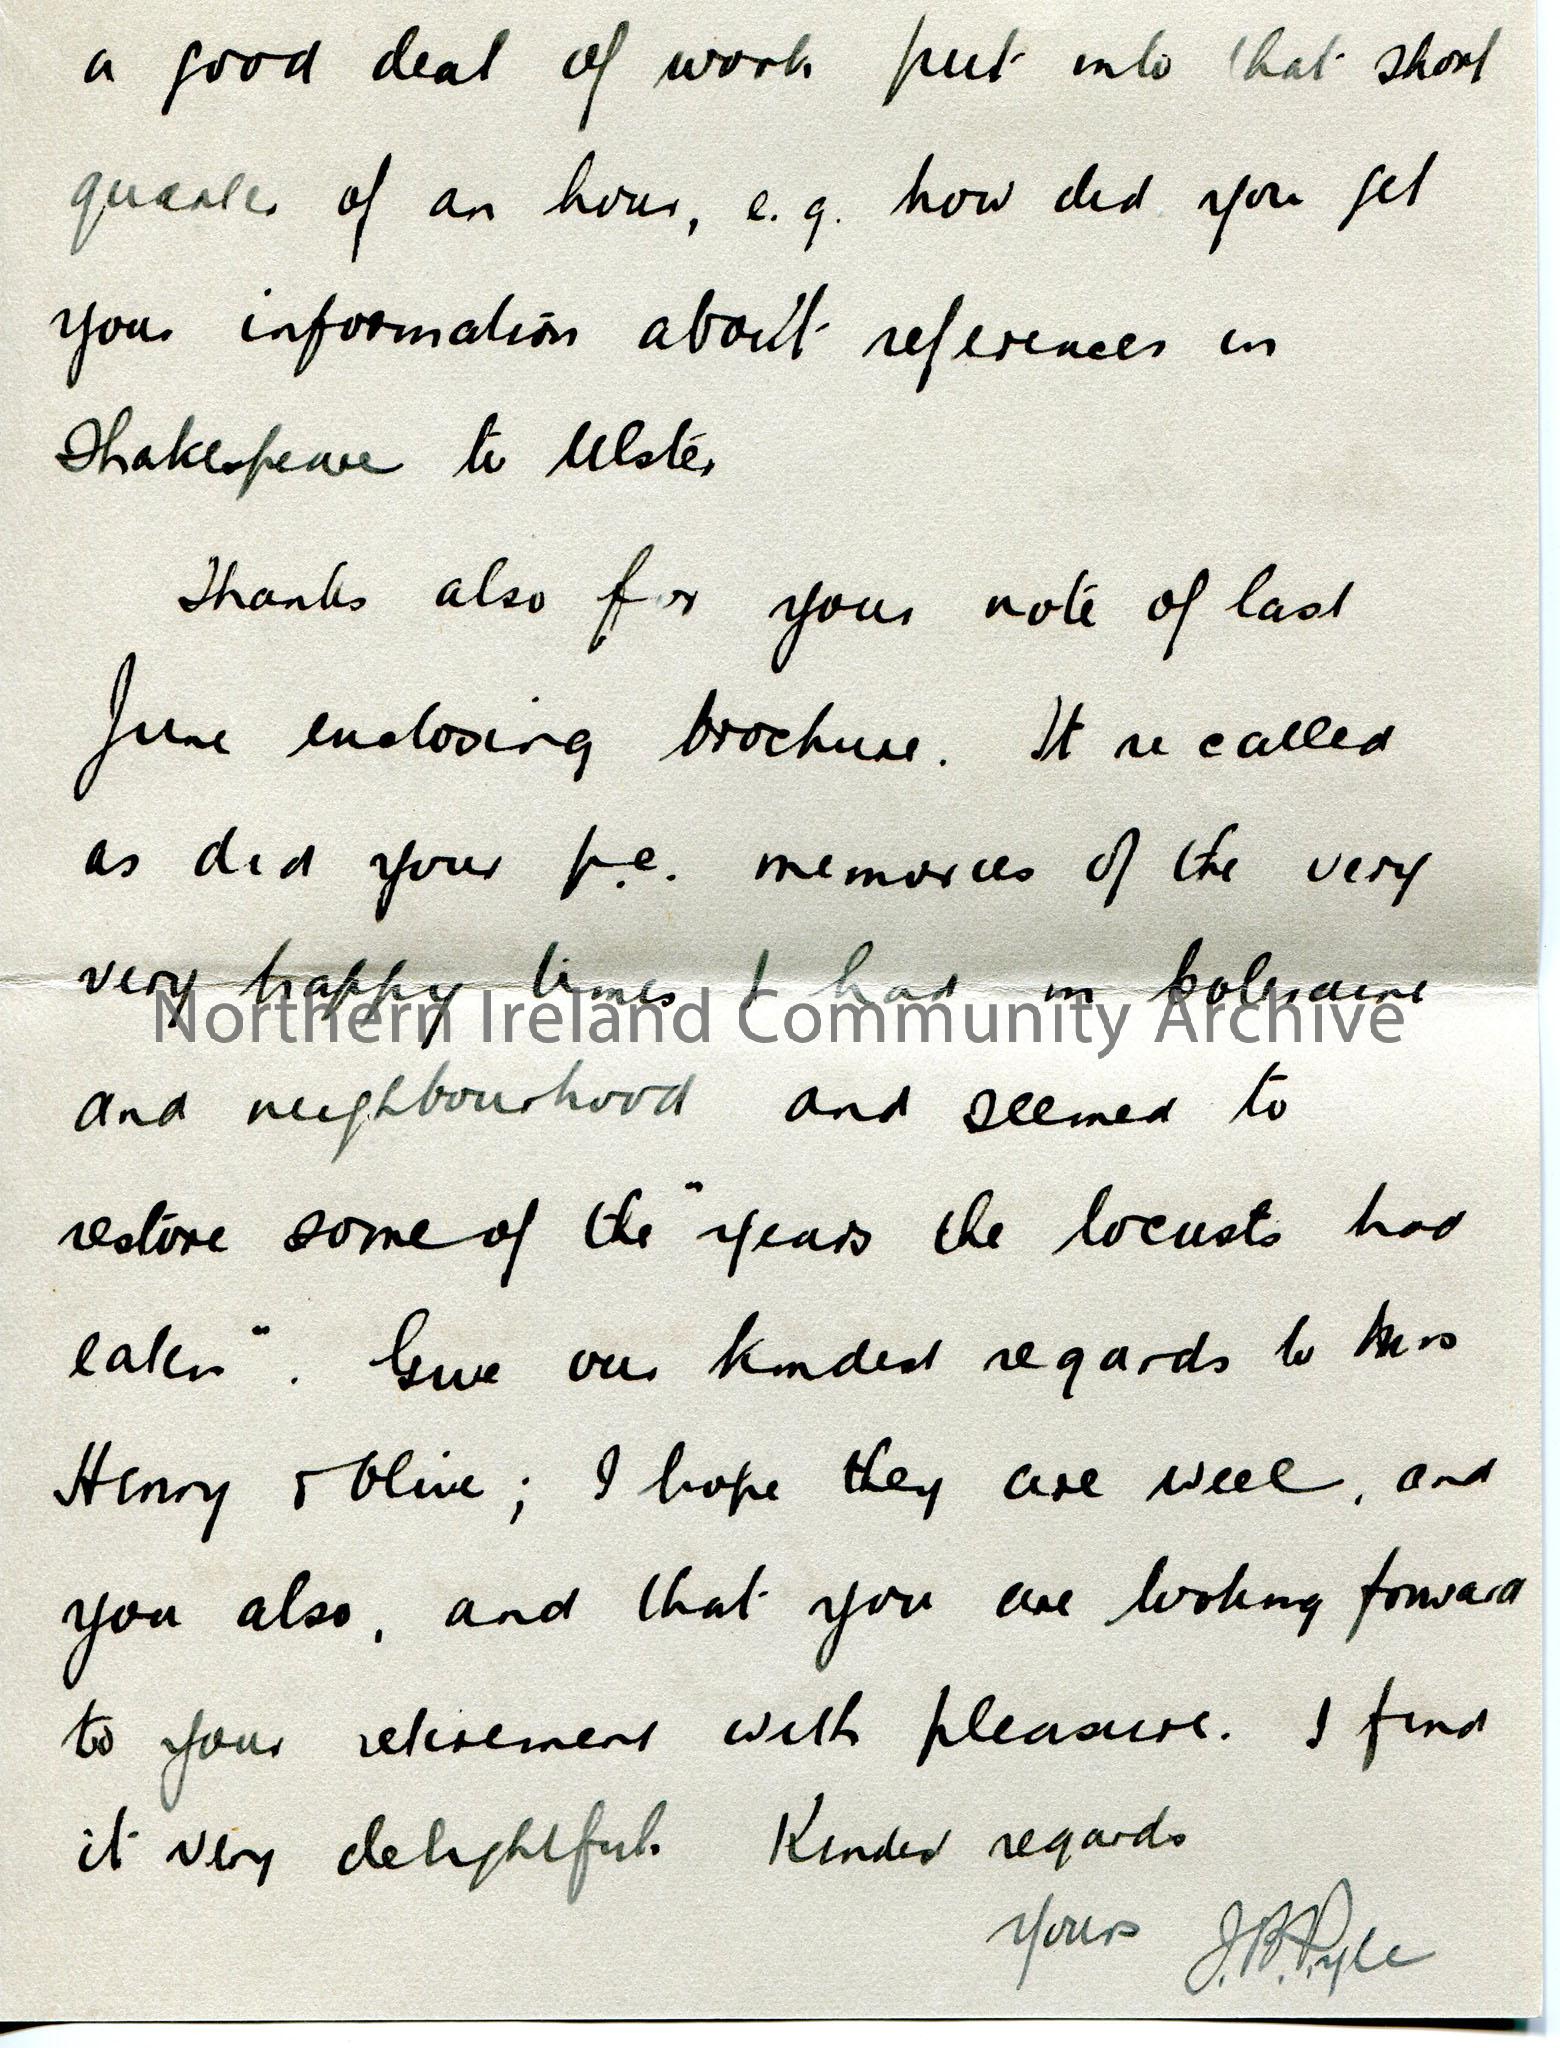 a good deal of work put into that short
quarter of an hour, e.g. how did you get
your information about references in
Shakespeare to Ulster
Thanks also for your note of last
June enclosing brochure. It recalled
as did your p.c. memories of the very
very happy times I had in Coleraine
Northern Ireland Community Archive
and neighbourhood and seemed to
restore some of the "years the locusts had
eaten". Give our kindest regards to Mrs
Henry & Olive; I hope they are well, and
you also, and that you are looking forward
to your retirement with pleasure. I find
it very delightful. Kindest regards
Yours J.B. Pyle